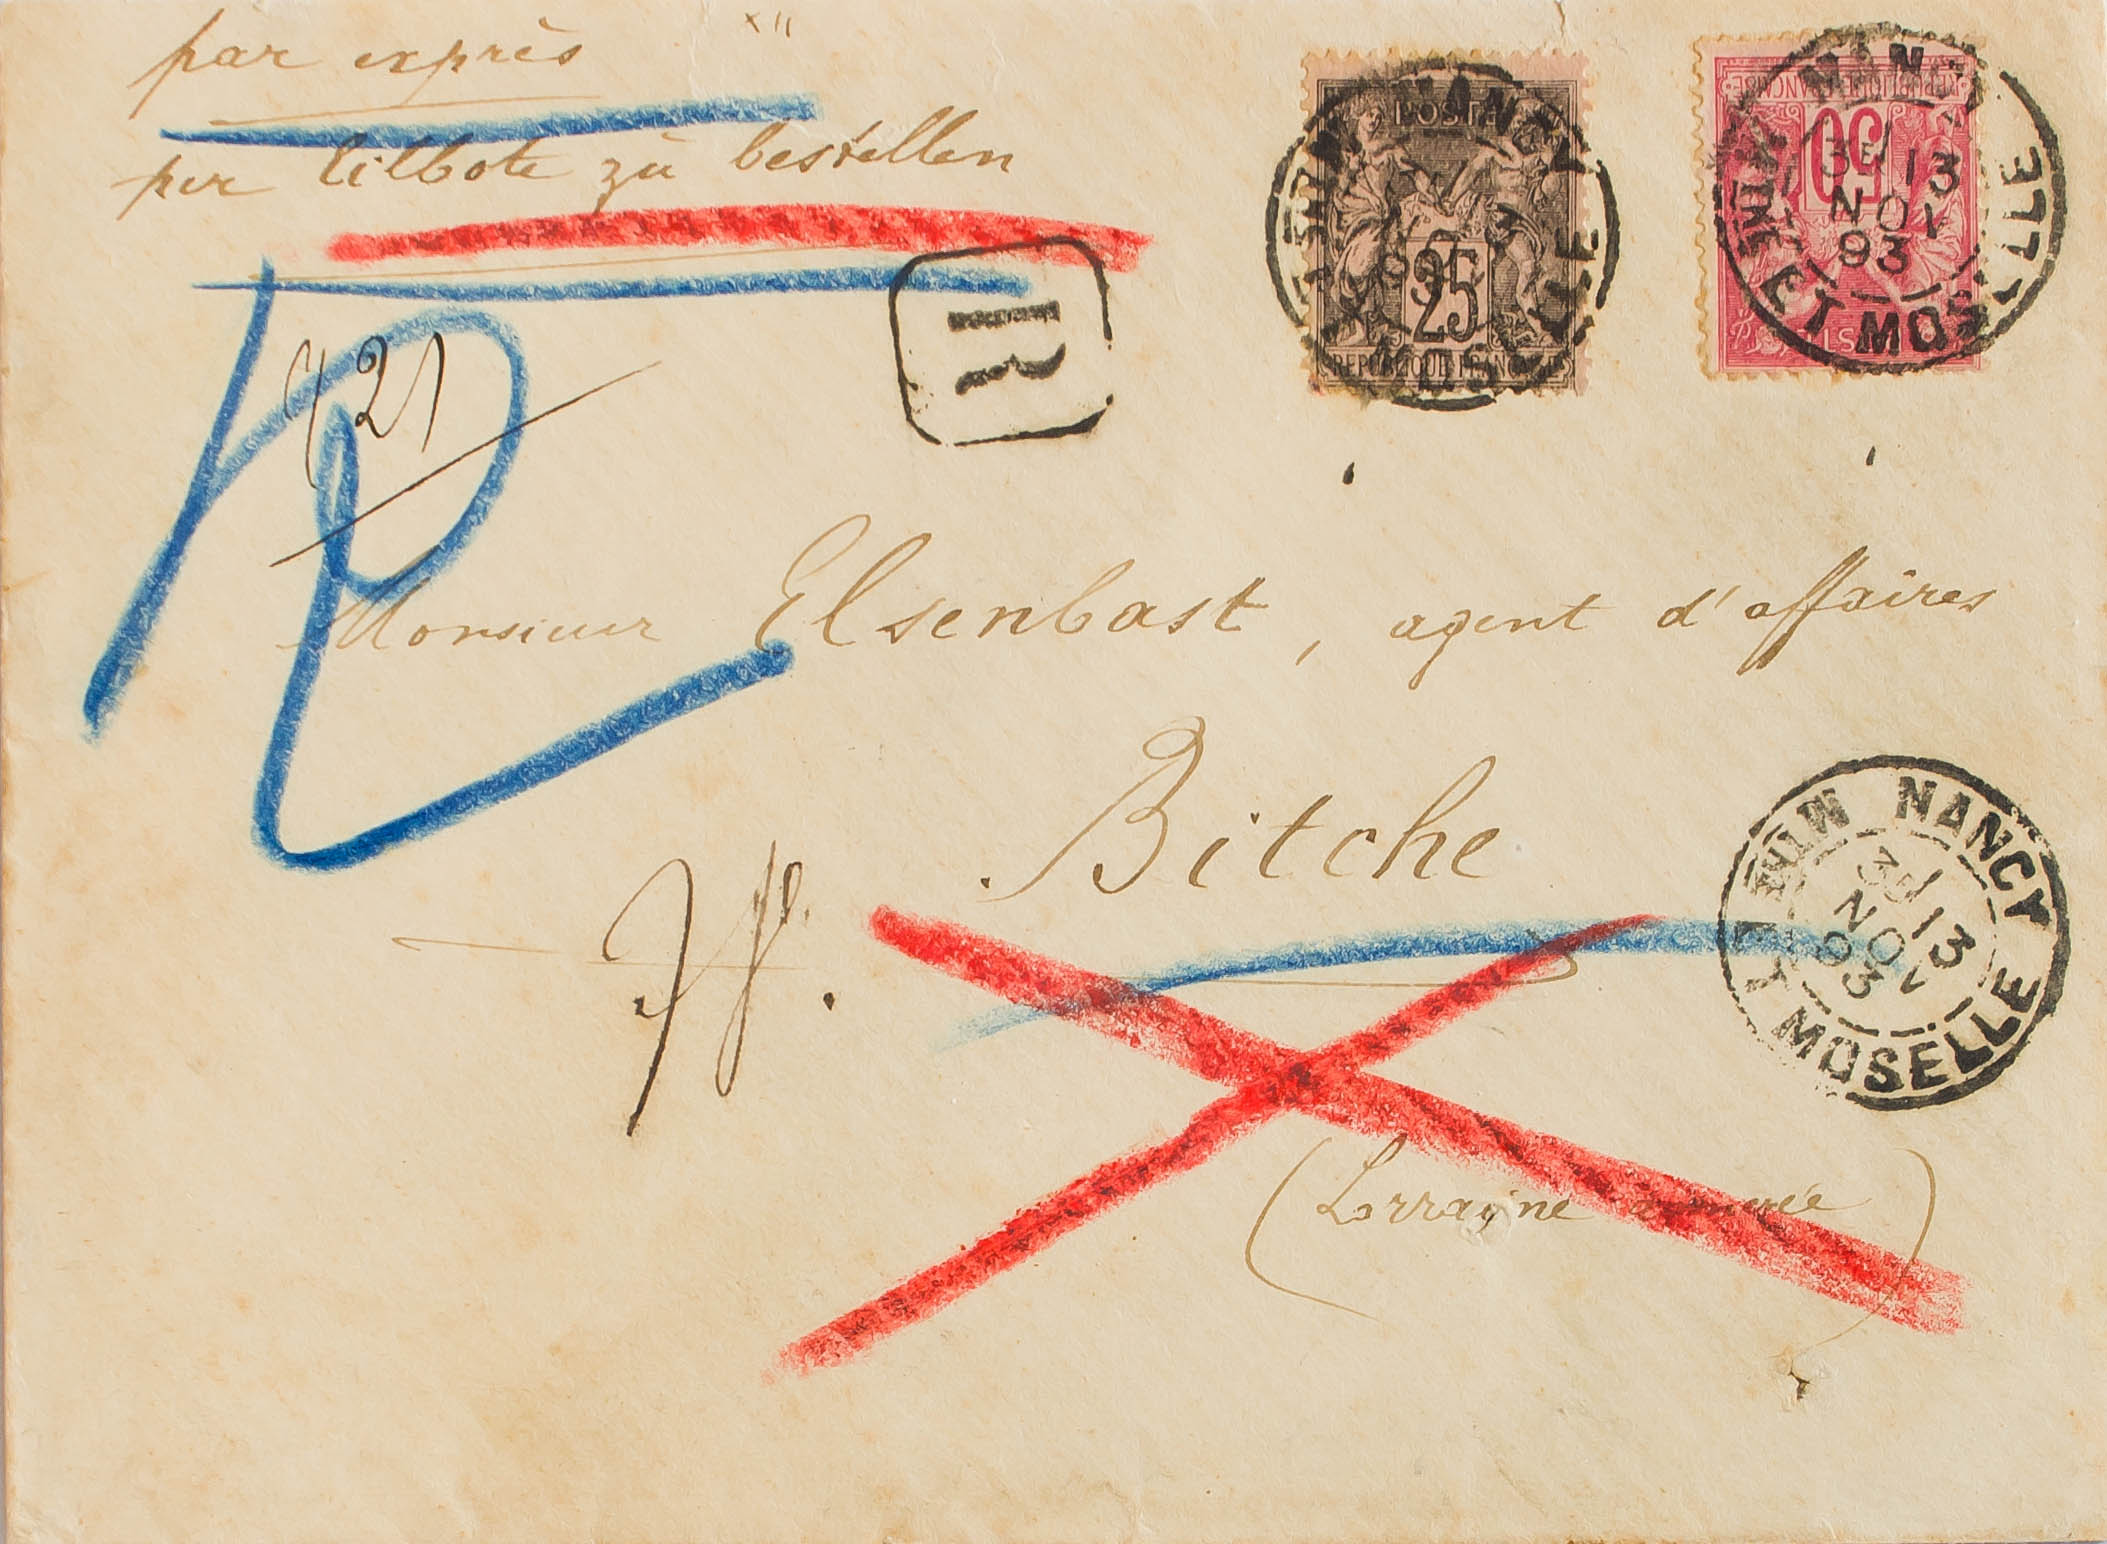 par exprès
per Eilbote zu bestellen
R
421
POSTES
25
REPUBLIQUE FRANÇAISE
NANCY
MEURTHE ET MOSELLE
REPUBLIQUE FRANÇAISE
50
POSTES
NANCY
3E 13
NOV
93
MEURTHE ET MOSELLE
Monsieur Elsenbast, agent d'affaires
Bitche
NANCY
3E 13
NOV
93
MEURTHE ET MOSELLE
(Lorraine annexée)